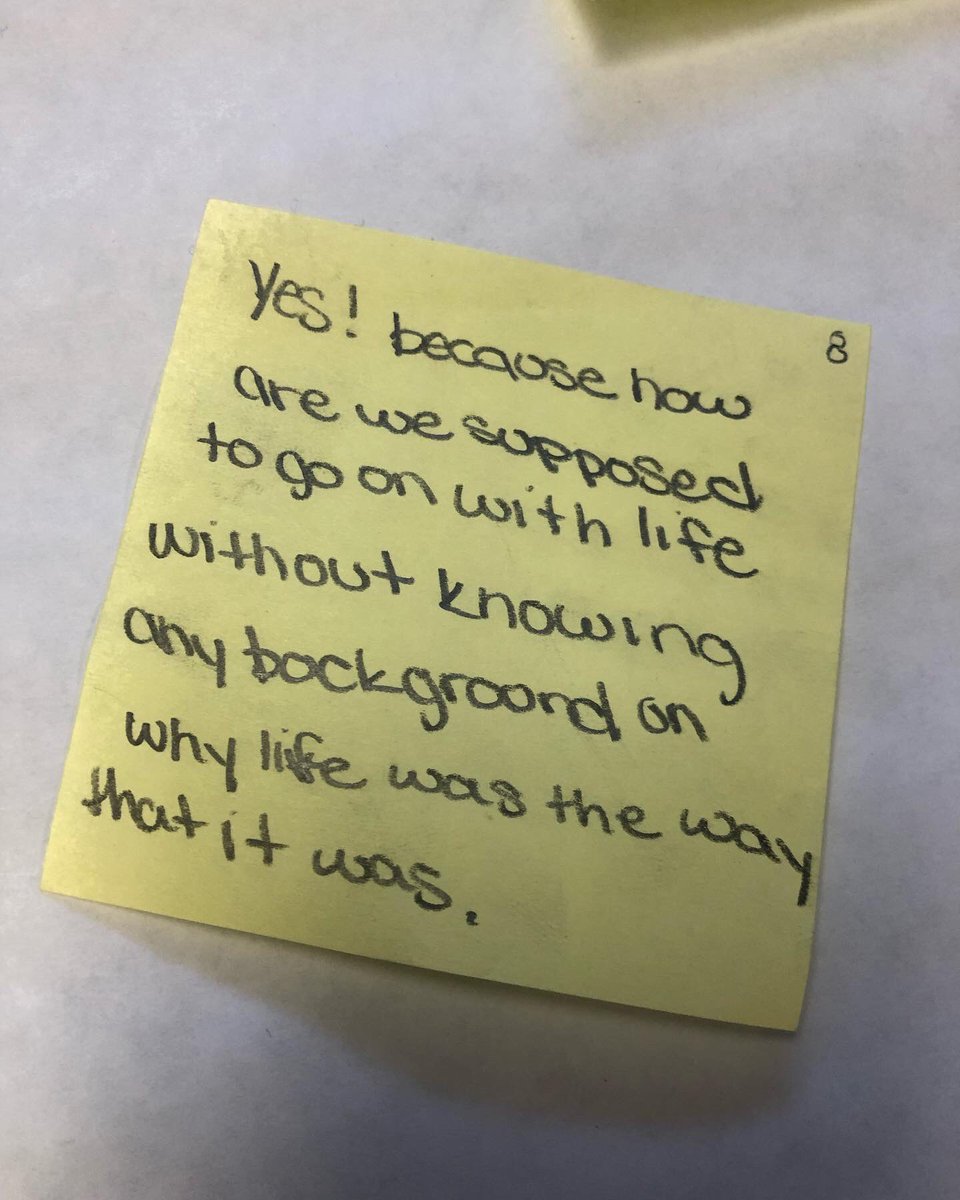 8
Yes! because how
are we supposed
to go on with life
without knowing
any background on
why life was the way
that it was.